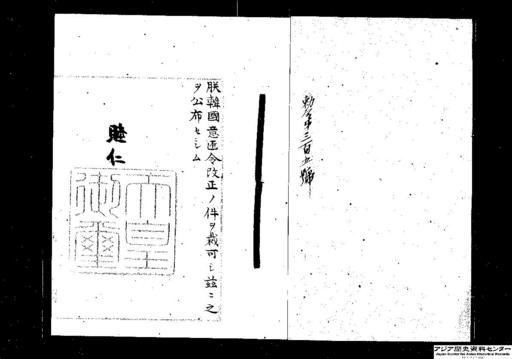 勅令第三百五號
朕韓國意匠令改正ノ件ヲ裁可シ茲ニ之
ヲ公布セシム
睦仁
天皇
御璽
アジア歴史資料センター
Japan Center for Asian Historical Records